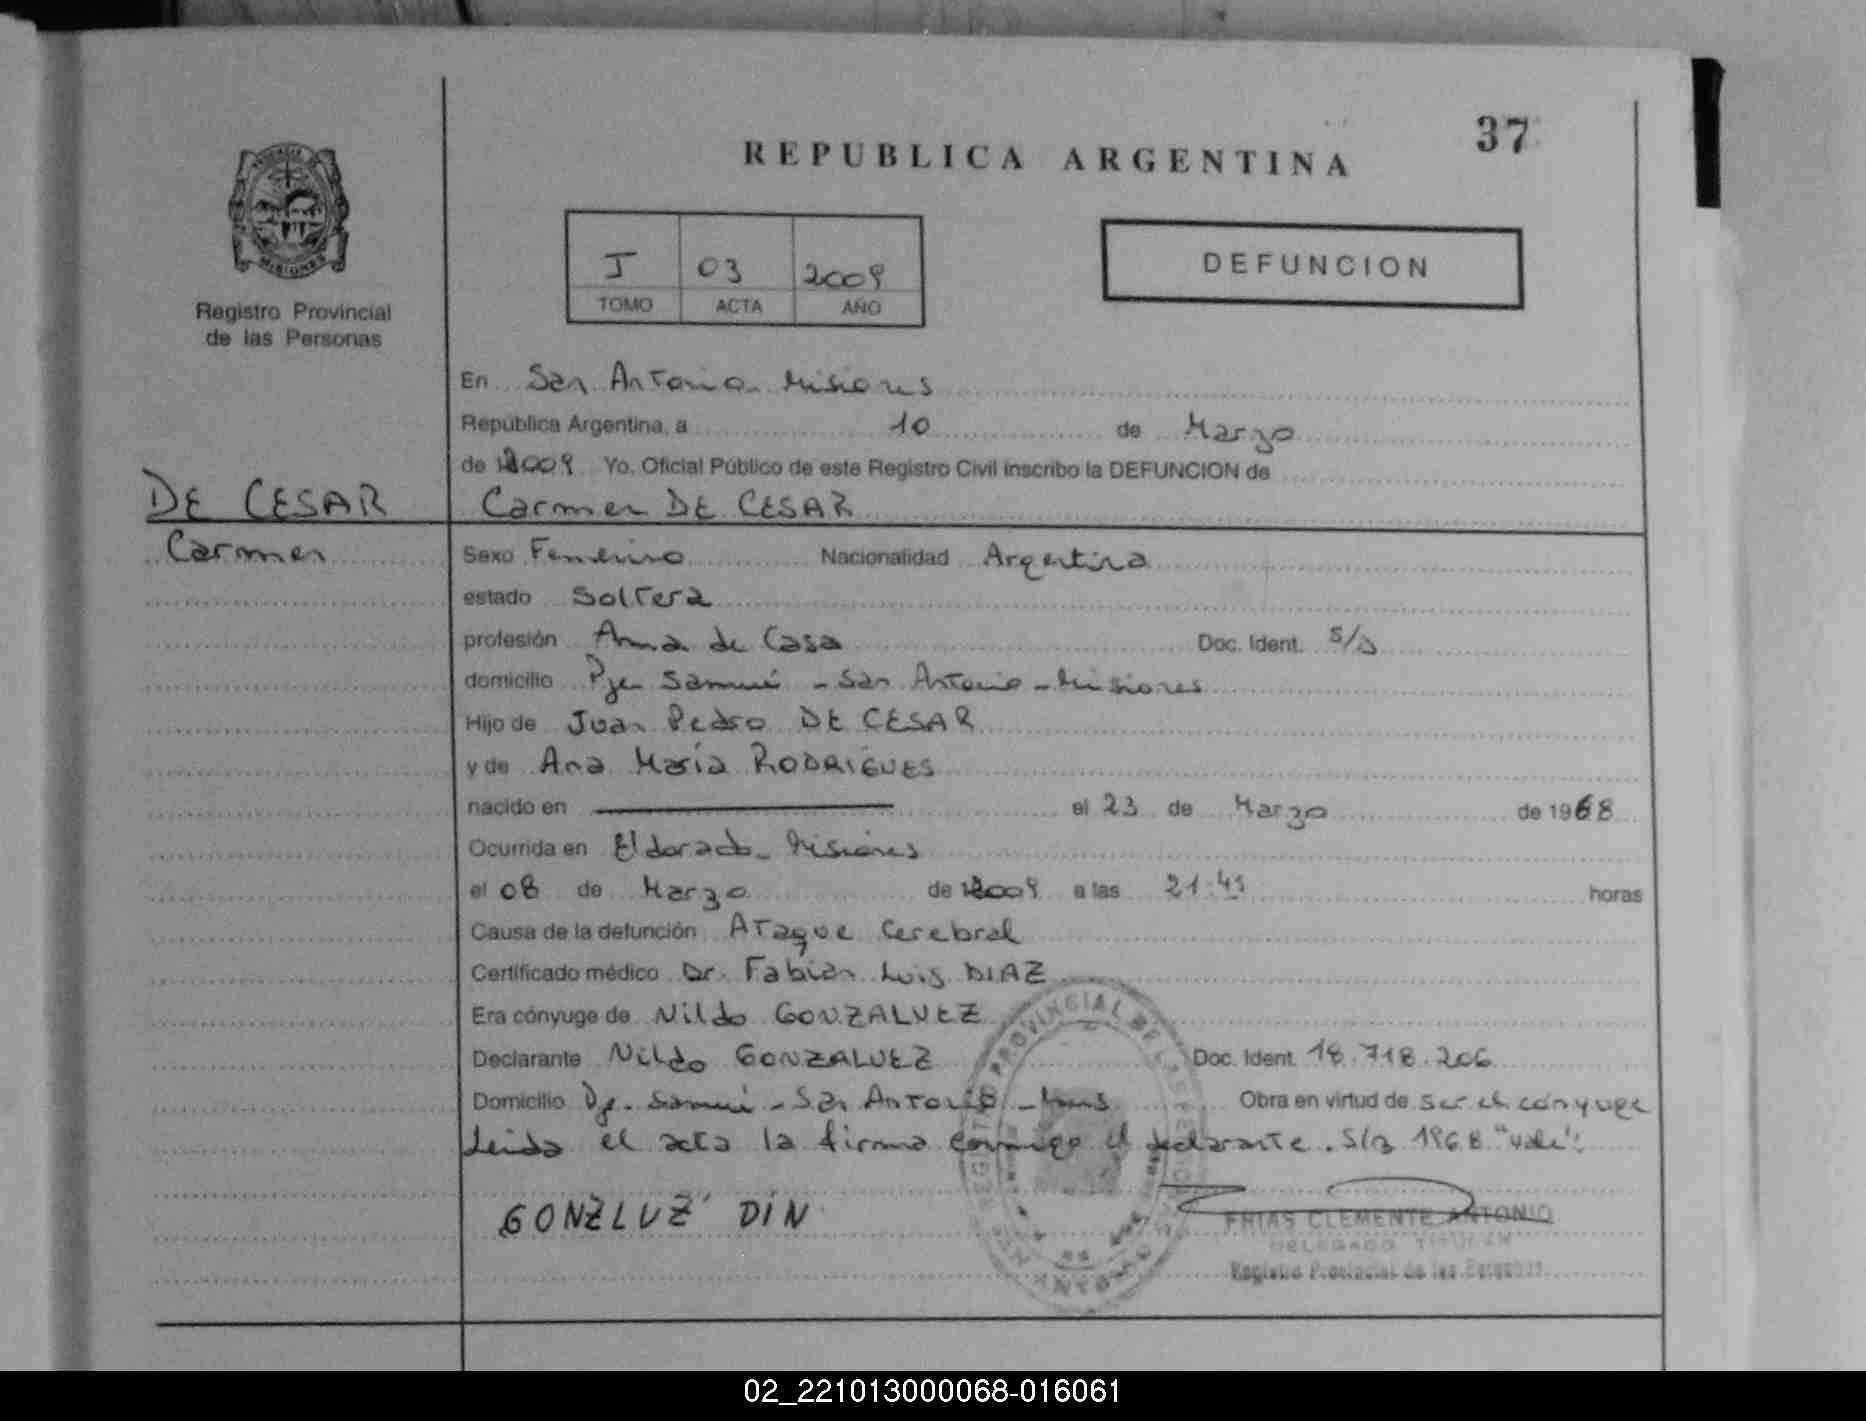 37
REPUBLICA ARGENTINA
PROVINCIA DE
MISIONES
Registro Provincial
de las Personas
I 03 2009
TOMO ACTA AÑO
DEFUNCION
En San Antonio Misiones
República Argentina, a 10 de Marzo
de 2009 Yo, Oficial Público de este Registro Civil inscribo la DEFUNCION de
DE CESAR
Carmen
Carmen DE CESAR
Sexo Femenino Nacionalidad Argentina
estado Soltera
profesión Ama de Casa Doc. Ident. S/D
domicilio Pje - San Antonio - Misiones
Hijo de Juan Pedro DE CESAR
y de Ana María RODRIGUES
nacido en el 23 de Marzo de 1968
Ocurrida en Eldorado - Misiones
el 08 de Marzo de 2009 a las 21:45 horas
Causa de la defunción Ataque Cerebral
Certificado médico Dr. Fabian Luis DIAZ
Era cónyuge de Nildo GONZALVEZ
Declarante Nildo GONZALVEZ Doc. Ident. 18.718.206
Domicilio Pje. - San Antonio - Mnes Obra en virtud de ser el cónyuge
Leida el acta la firma conmigo el declarante. S/R 1968 "vale".
GONZLUZ DIN
FRIAS CLEMENTE ANTONIO
DELEGADO TITULAR
Registro Provincial de las Personas
REGISTRO PROVINCIAL DE LAS PERSONAS
SAN ANTONIO
02_221013000068-016061